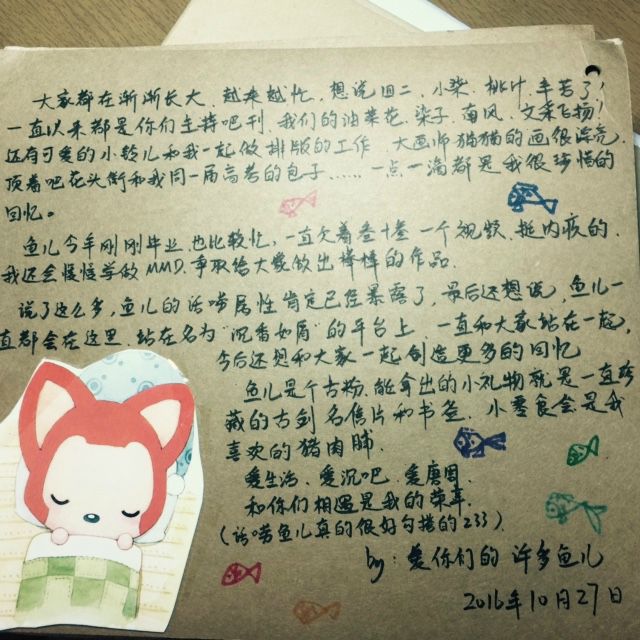 大家都在渐渐长大，越来越忙，想说旧二、小柒、桃汁，辛苦了！
一直以来都是你们主持吧刊，我们的油菜花，染子，南风，文采飞扬！
还有可爱的小铃儿和我一起做排版的工作，大画师猫猫的画很漂亮，
顶着吧花头衔和我同一届高考的包子……一点一滴都是我很珍惜的
回忆。
鱼儿今年刚刚毕业，也比较忙，一直欠着叁十叁一个视频，挺内疚的，
我还会慢慢学做MMD，争取给大家做出棒棒的作品。
说了这么多，鱼儿的话唠属性肯定已经暴露了，最后还想说，鱼儿一
直都会在这里，站在名为“沉香如屑”的平台上，一直和大家站在一起，
今后还想和大家一起创造更多的回忆
鱼儿是个古粉，能拿出的小礼物就是一直珍
藏的古剑名信片和书签，小零食会是我
喜欢的猪肉脯。
爱生活、爱沉吧、爱唐图。
和你们相遇是我的荣幸。
（话唠鱼儿真的很好勾搭的233）
by：爱你们的 许多鱼儿
2016年10月27日